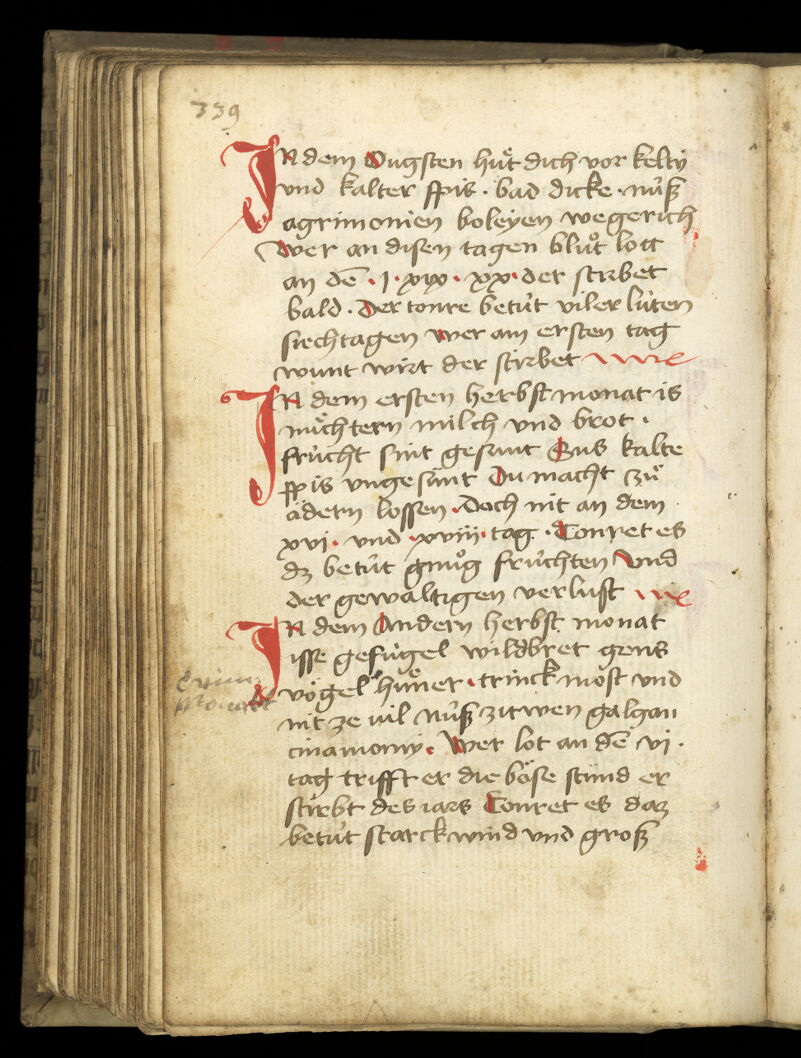 339
In dem Ougsten huͤt dich vor kelty
vnd kalter spis · bad dicke · nuͥß
agrimonien boleyen wegerich
Wer an disen tagen bluͦt lott
an dē · j · xix · xx · der stirbet
bald · der tonre betuͥt viler luͥten
siechtagen wer am ersten tag
wunt wirt der stirbet
In dem ersten herbstmonat is
nuͤchtern milch vnd brot ·
fruͥcht sint gesunt Gus kalte
spis vngesunt Du macht zuͦ
ädern lossen · Doch nit an dem
xvi · vnd · xviii · tag · Tonret es
dz betuͥt gnuͦg fruͥchten vnd
der gewaltigen verlust
In dem Andern herbst monat
isse gefuͥgel wildbret gens
vögel huͤner · trinck most vnd
nit ze vil nuͥß zitwen galgan
cinamomy · Wer lot an dē vi ·
tag trifft er die böse stund er
stirbt des iars Tonret es daz
betuͥt starck wind vnd groß